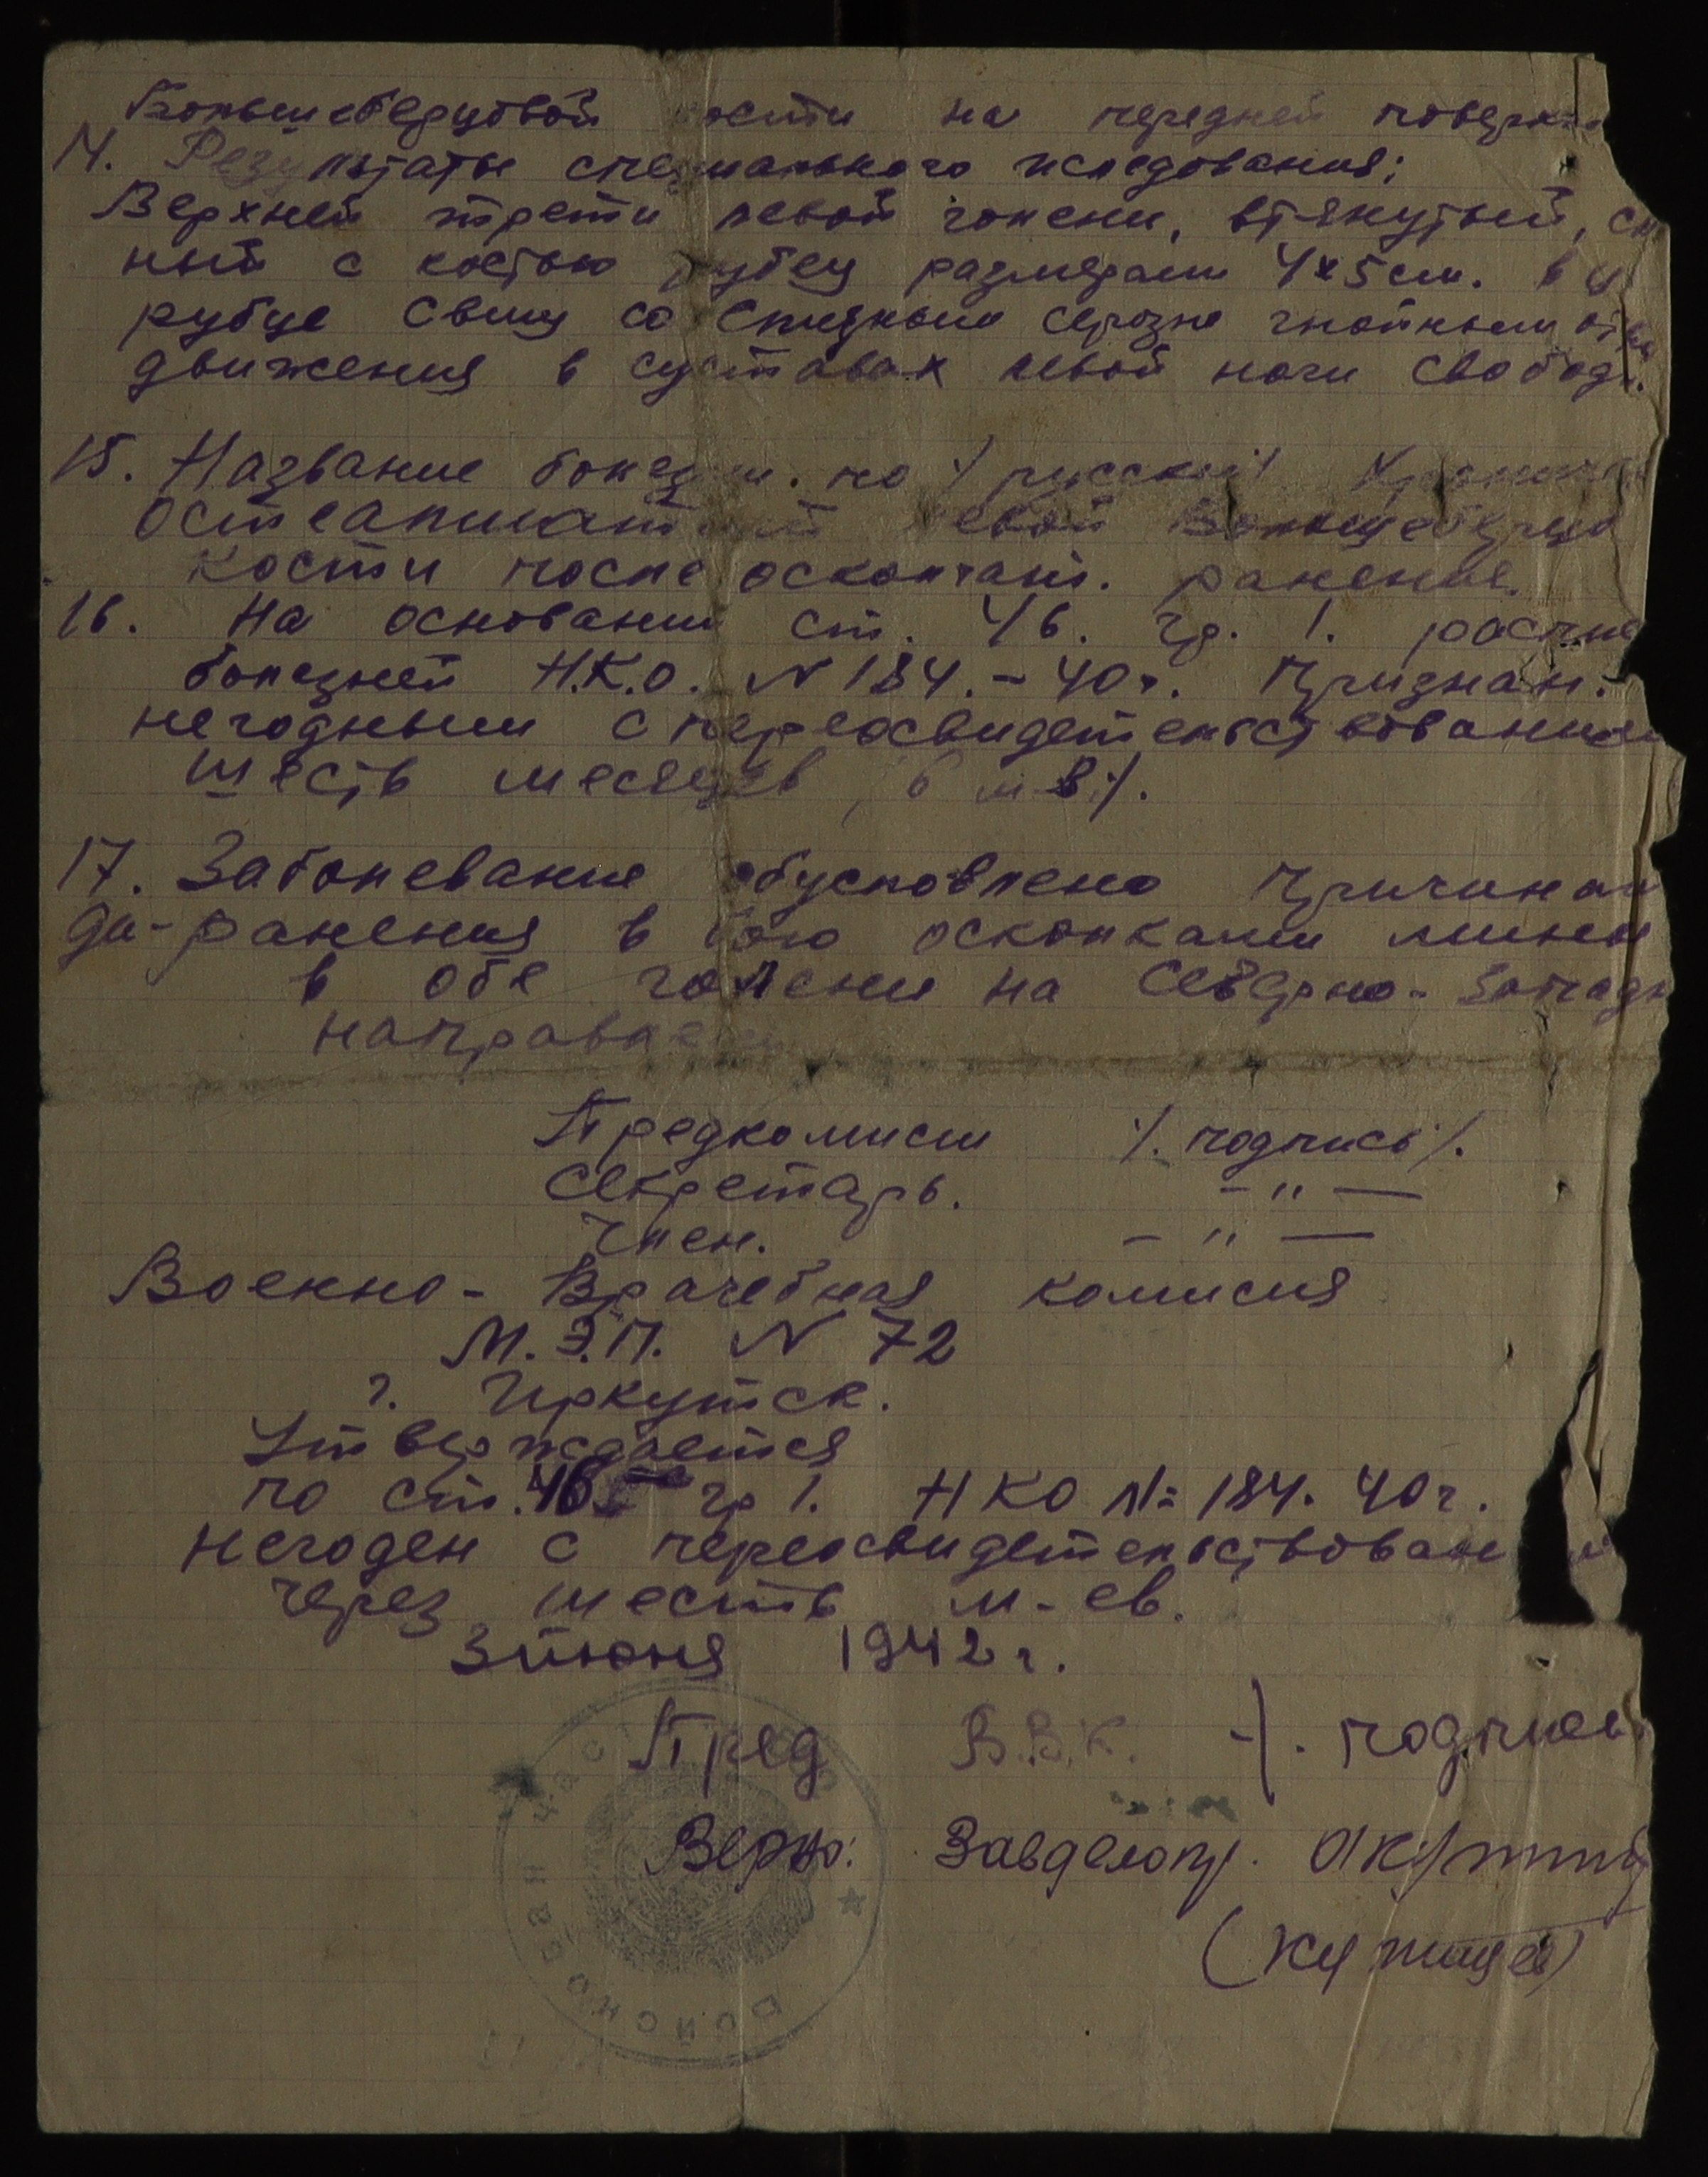 Большеберцовой кости на передней поверхн
14. Результаты специального иследования:
Верхней трети левой голени, втянутый, сп
ный с костью рубец размерами 4х5 см. в
рубце свищ со скудным серозно гнойным от
движения в суставах левой ноги свободн.
15. Название болезни. по /русски/ Хроничес
остеапиатит левой Большеберцо
кости после осколчат. ранения.
16. На основании ст. 46. гр. 1. распис
болезней Н.К.О. N 184.-40г. Признан.
негодным с переосвидетельствованием
шесть месяцев, 6 м-в/.
17. Заболевание обусловлено причинам
да-ранения в бою осколками мины
в обе голени на Северно-Западн
направлении
Предкомисии /. подпись/.
Секретарь. - " -
Член. - " -
Военно-Врачебная комисия
М.Э.П. N 72
г. Иркутск.
Утверждается
по ст. 46 гр 1. НКО N= 184. 40г.
негоден с переосвидетельствован
через шесть м-ев.
3 июня 1942 г.
Пред В.В.К. -/. подпись
Верно: Завделопр.
РАЙОННО ВАЯ ЧАС